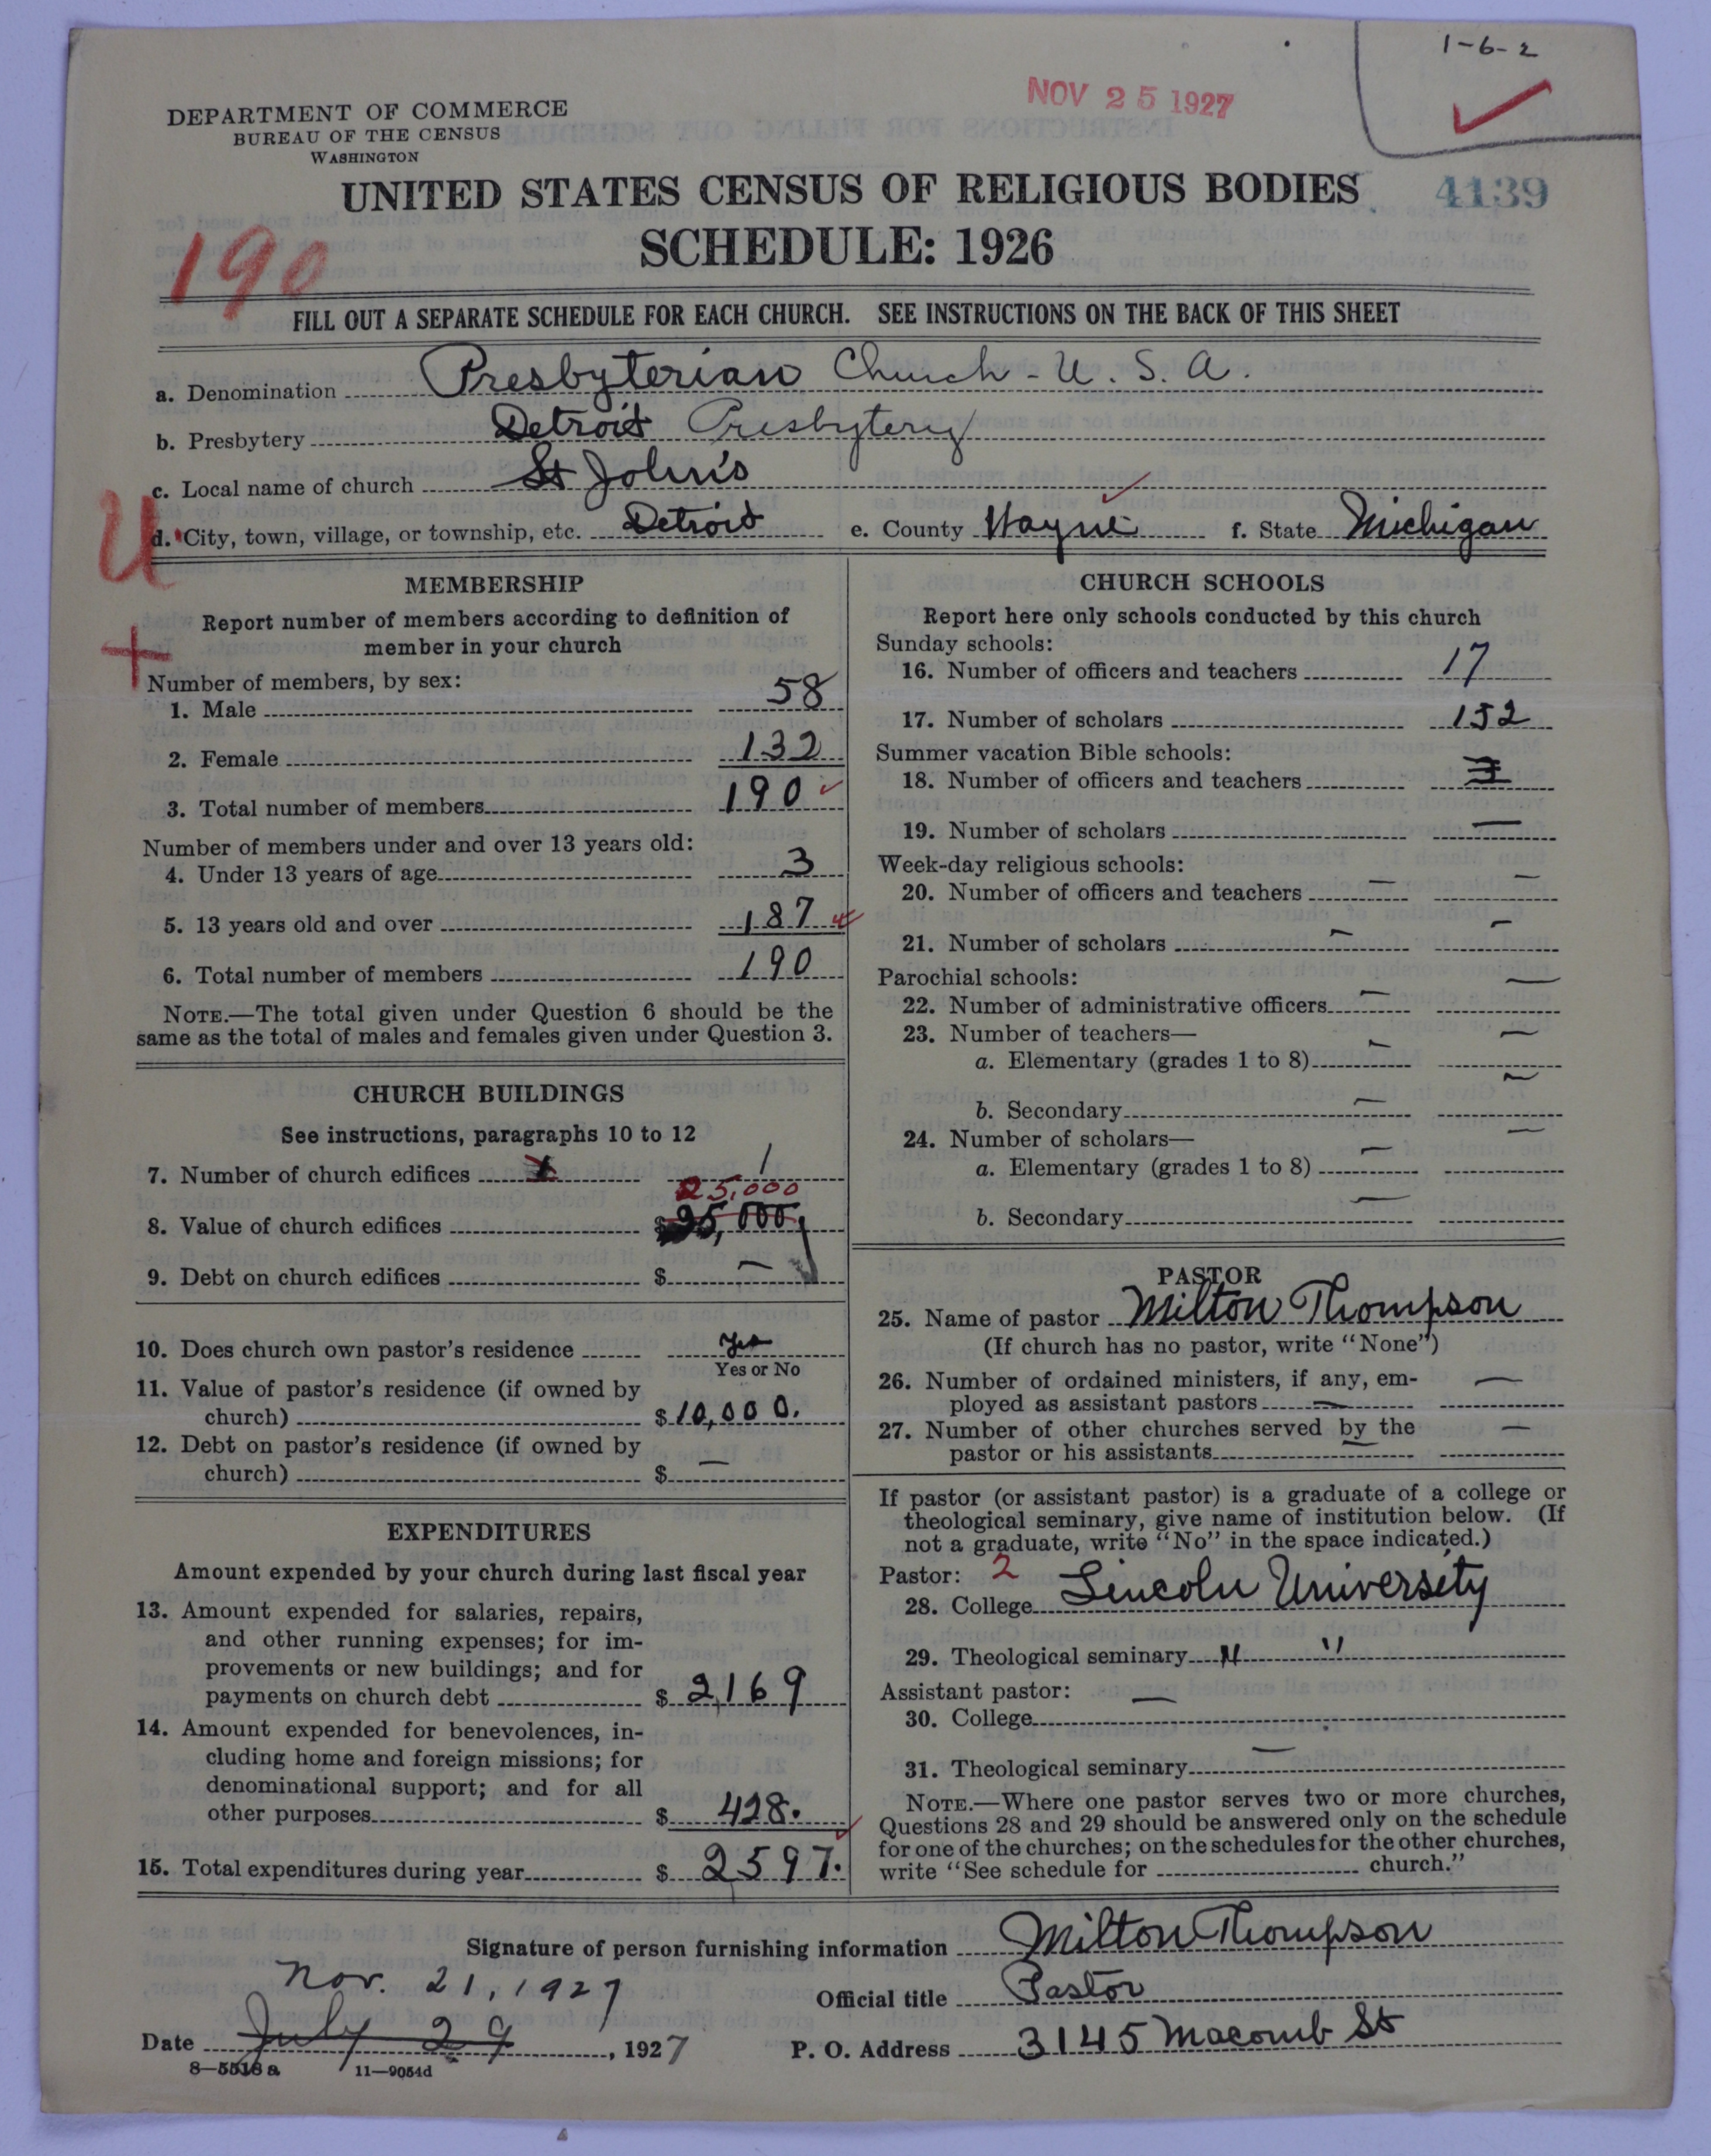 1-6-2
NOV 25 1927
DEPARTMENT OF COMMERCE
BUREAU OF THE CENSUS
WASHINGTON
UNITED STATES CENSUS OF RELIGIOUS BODIES
4139
SCHEDULE: 1926
190
FILL OUT A SEPARATE SCHEDULE FOR EACH CHURCH. SEE INSTRUCTIONS ON THE BACK OF THIS SHEET
a. Denomination Presbyterian Church - U. S. A.
b. Presbytery Detroit Presbytery
c. Local name of church St John's
U
d. City, town, village, or township, etc. Detroit e. County Wayne f. State Michigan
MEMBERSHIP
Report number of members according to definition of
member in your church
Number of members, by sex:
1. Male 58
2. Female 132
3. Total number of members 190
Number of members under and over 13 years old:
4. Under 13 years of age 3
5. 13 years old and over 187
6. Total number of members 190
NOTE.—The total given under Question 6 should be the
same as the total of males and females given under Question 3.
CHURCH BUILDINGS
See instructions, paragraphs 10 to 12
7. Number of church edifices 1
25,000
8. Value of church edifices $25,000
9. Debt on church edifices $ —
10. Does church own pastor's residence Yes
Yes or No
11. Value of pastor's residence (if owned by
church) $10,000.
12. Debt on pastor's residence (if owned by
church) $ —
EXPENDITURES
Amount expended by your church during last fiscal year
13. Amount expended for salaries, repairs,
and other running expenses; for im-
provements or new buildings; and for
payments on church debt $ 2,169
14. Amount expended for benevolences, in-
cluding home and foreign missions; for
denominational support; and for all
other purposes $ 428.
15. Total expenditures during year $ 2,597.
CHURCH SCHOOLS
Report here only schools conducted by this church
Sunday schools:
16. Number of officers and teachers 17
17. Number of scholars 152
Summer vacation Bible schools:
18. Number of officers and teachers
19. Number of scholars —
Week-day religious schools:
20. Number of officers and teachers — —
21. Number of scholars — —
Parochial schools:
22. Number of administrative officers — —
23. Number of teachers—
a. Elementary (grades 1 to 8) — —
b. Secondary — —
24. Number of scholars—
a. Elementary (grades 1 to 8) — —
b. Secondary —
PASTOR
25. Name of pastor Milton Thompson
(If church has no pastor, write "None")
26. Number of ordained ministers, if any, em-
ployed as assistant pastors — —
27. Number of other churches served by the
pastor or his assistants — —
If pastor (or assistant pastor) is a graduate of a college or
theological seminary, give name of institution below. (If
not a graduate, write "No" in the space indicated.)
Pastor: 2
28. College Lincoln University
29. Theological seminary " "
Assistant pastor:
30. College —
31. Theological seminary —
NOTE.—Where one pastor serves two or more churches,
Questions 28 and 29 should be answered only on the schedule
for one of the churches; on the schedules for the other churches,
write "See schedule for church."
Signature of person furnishing information Milton Thompson
Nov. 21, 1927
Official title Pastor
Date July 29, 1927
P. O. Address 3145 Macomb St
8—5518 a 11—9054d